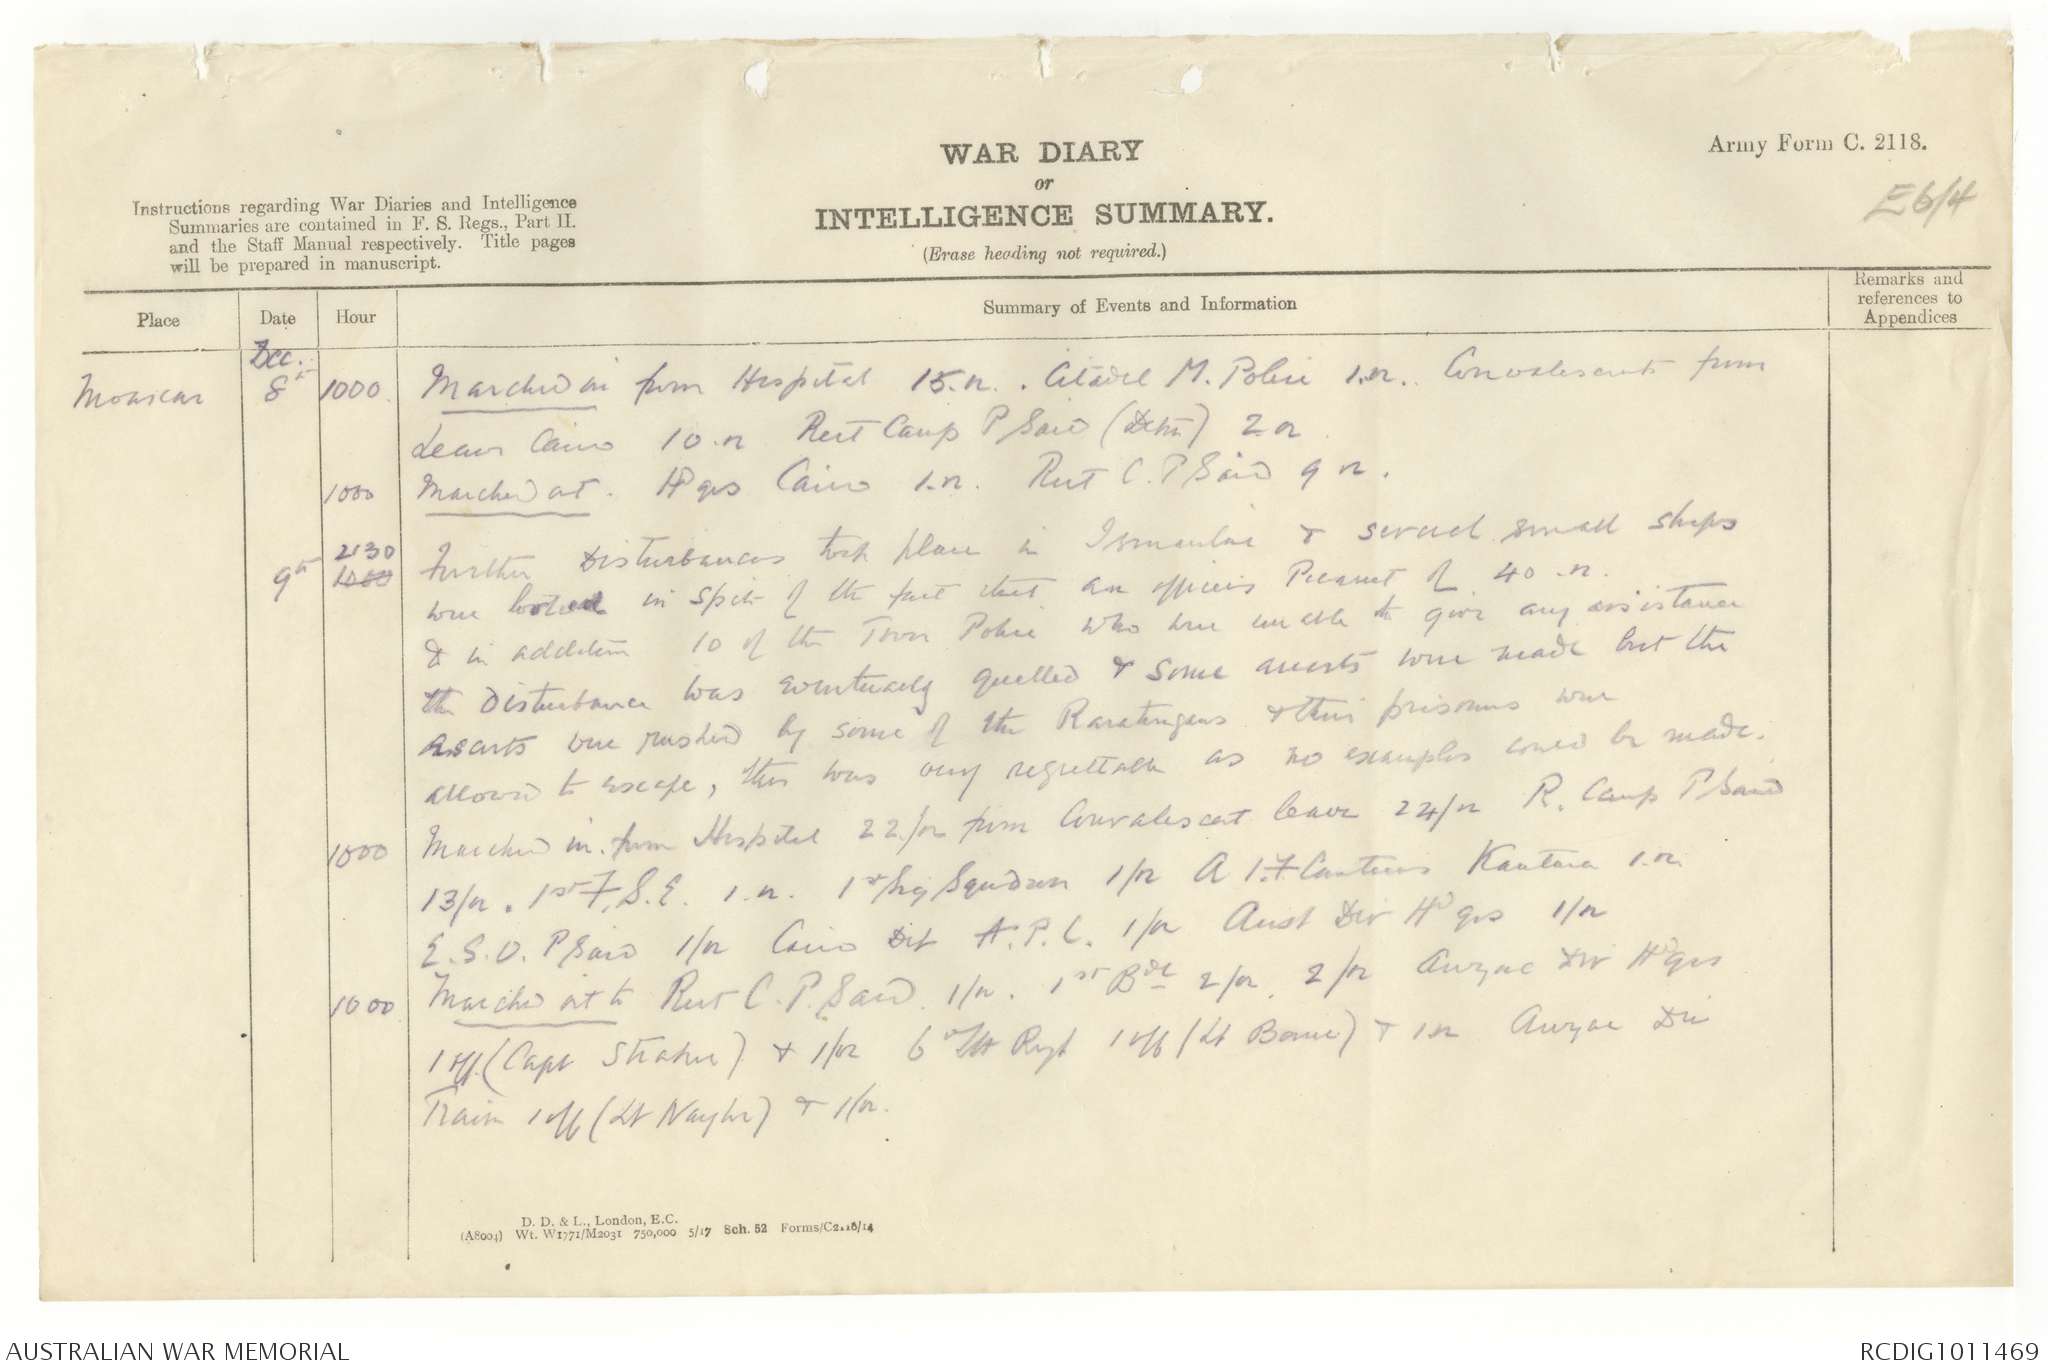 WAR DIARY
or
INTELLIGENCE SUMMARY.
(Erase heading not required.)
Army Form C. 2118.
E6/4
Instructions regarding War Diaries and Intelligence
Summaries are contained in F. S. Regs., Part II.
and the Staff Manual respectively. Title pages
will be prepared in manuscript.
Place Date Hour Summary of Events and Information Remarks and references to Appendices
Dec.
Moascar 8th 1000 Marched in from Hospital 15 or. Citadel M. Police 1.or. Convalescents from
Leave Cairo 10 or Rest Camp P Said (Dtn) 2 or
1000 Marched out. Hd qrs Cairo 1.or. Rest C. P Said 9 or.
9th 2130 1000 Further Disturbances took place in Ismailia & several small shops
were looted in spite of the fact that an officers Picquet of 40 or.
& in addition 10 of the Town Police who were unable to give any assistance
the Disturbance was eventually quelled & some arrests were made but the
escorts were rushed by some of the Raratongans & their prisoners were
allowed to escape, this was very regrettable as no examples could be made.
1000 Marched in from Hospital 22/or from Convalescent leave 24/or R. Camp P Said
13/or. 1st F.S.E. 1.or. 1st Sig Squadron 1/or A.I.F Canteens Kantara 1.or
E.S.O. P Said 1/or Cairo Det A.P.C. 1/or Aust Div Hd qrs 1/or
1000 Marched out to Rest C. P. Said 1/or. 1st Bde 2/or. 2/or Anzac Div Hd qrs
1 off. (Capt Straker) & 1/or 6th LH Regt 1 off (Lt ) & 1 or Anzac Div
Train 1 off (Lt Naylor) & 1/or.
D. D. & L., London, E.C.
(A8004) Wt. W1771/M2031 750,000 5/17 Sch. 52 Forms/C2118/14
AUSTRALIAN WAR MEMORIAL
RCDIG1011469